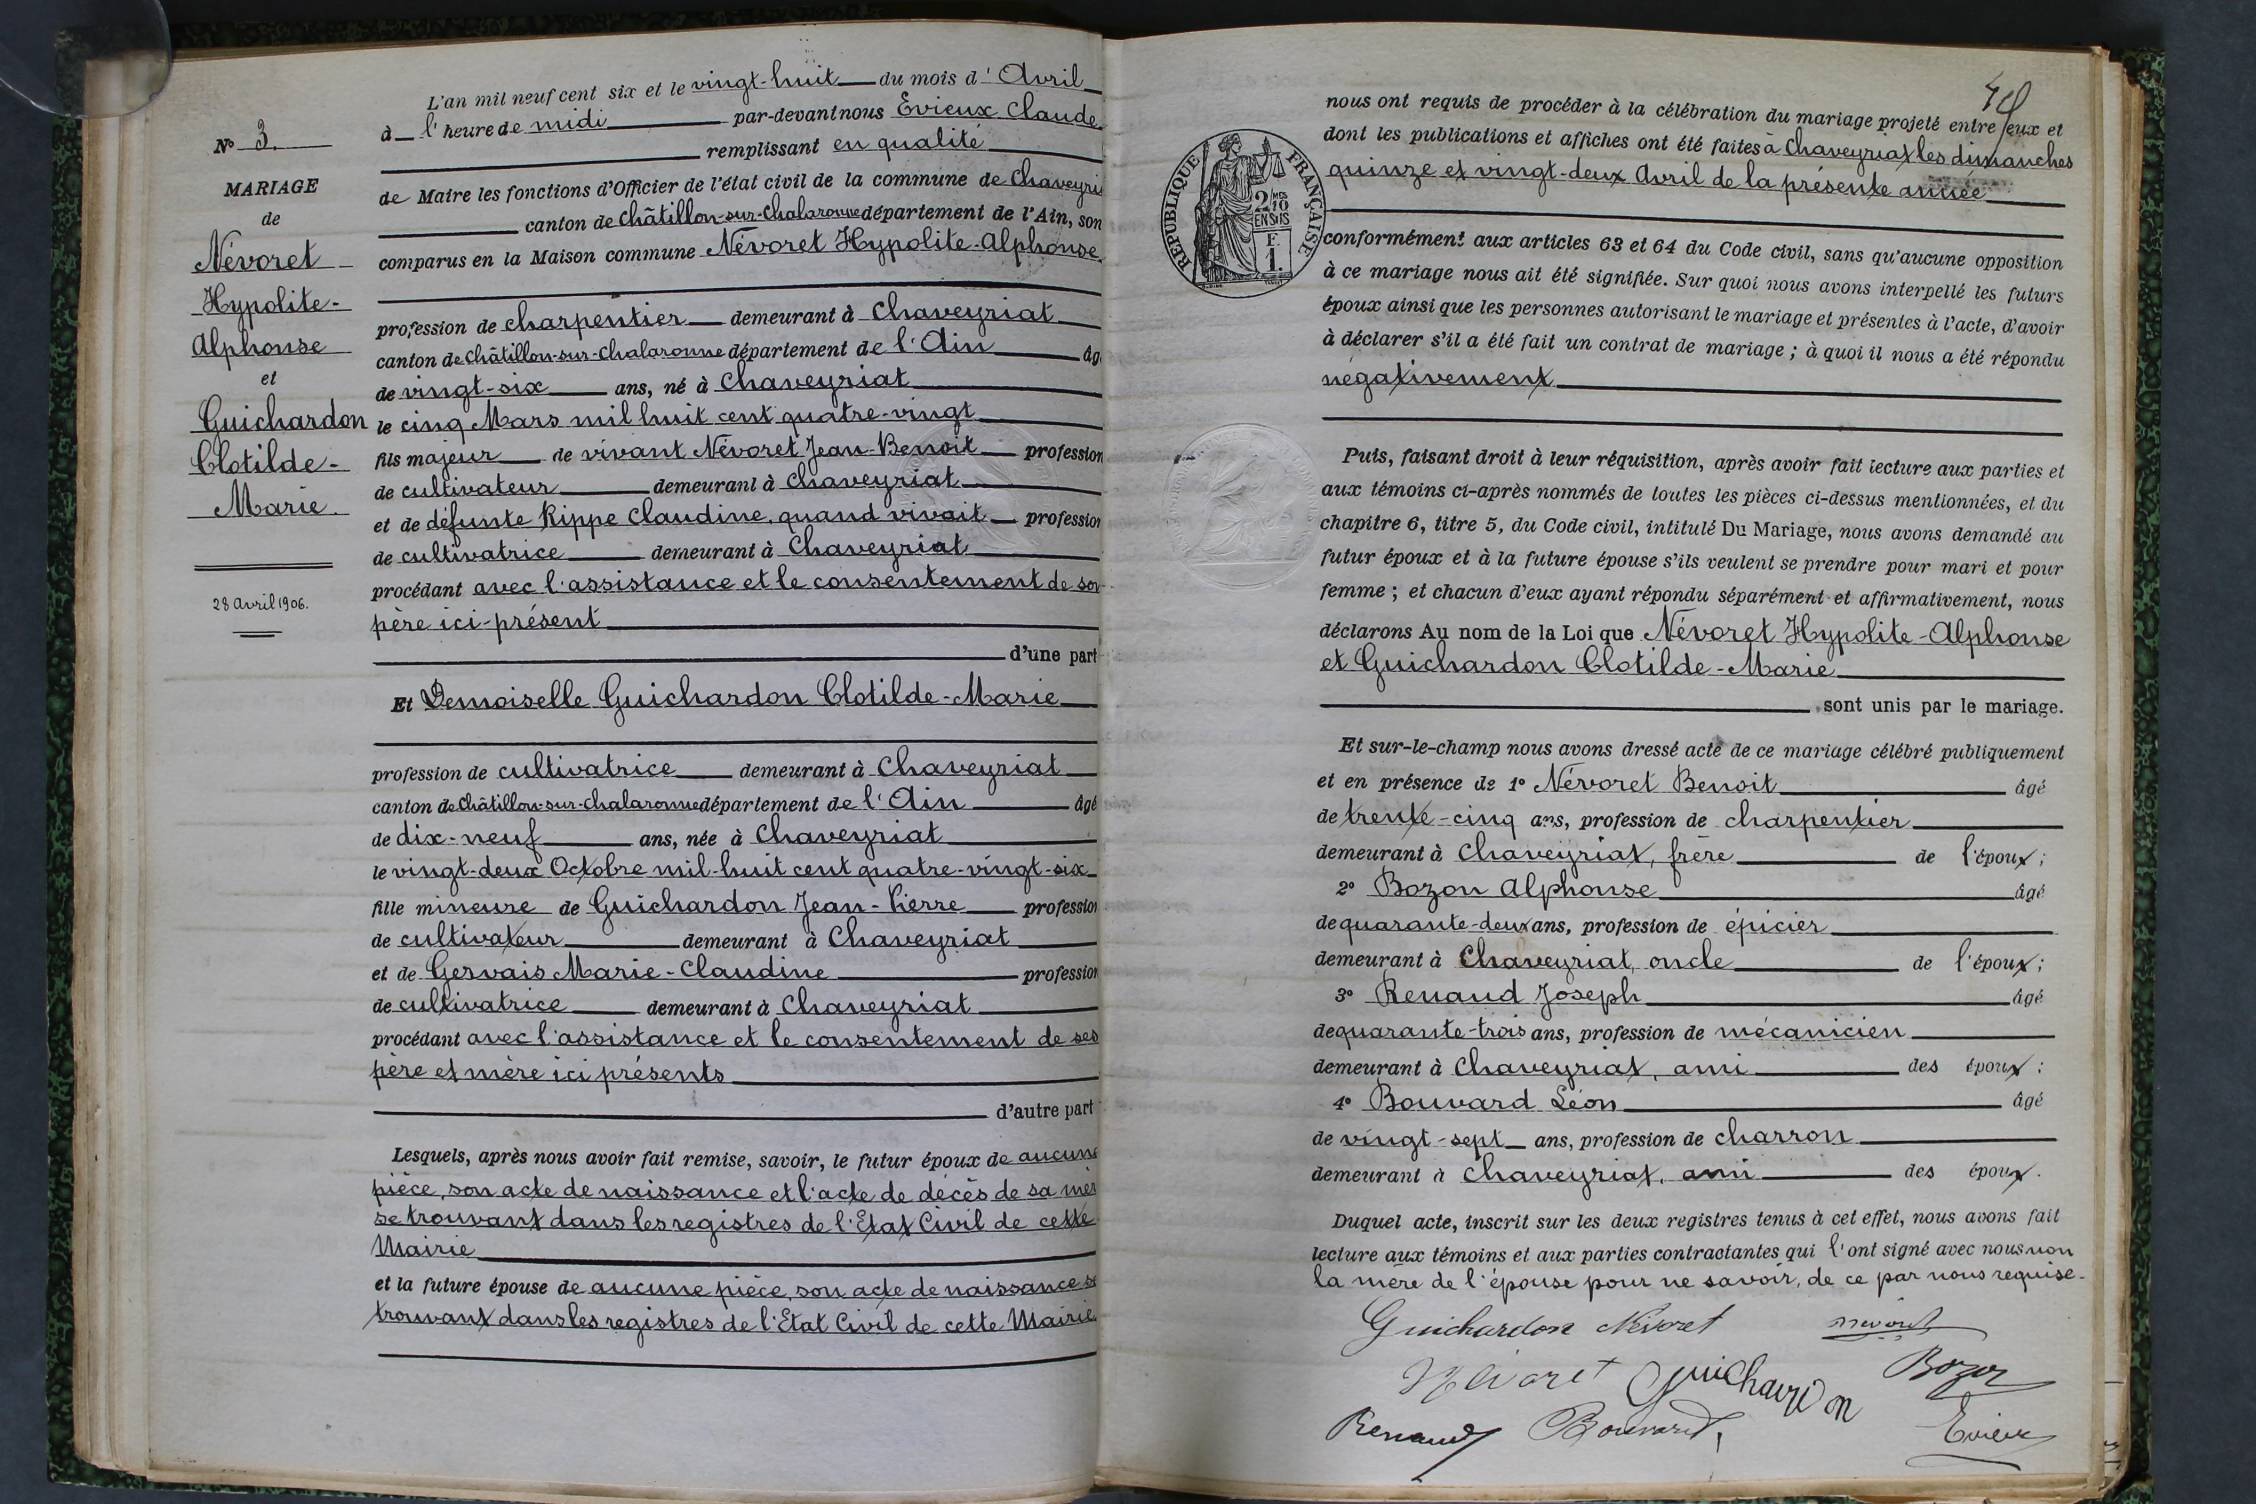 N° 3.
MARIAGE
de
Névoret
Hypolite-
Alphonse
et
Guichardon
Clotilde-
Marie.
28 avril 1906.
L'an mil neuf cent six et le vingt-huit du mois d'Avril
à l'heure de midi par-devant nous Evieux Claude
remplissant en qualité
de Maire les fonctions d'Officier de l'état civil de la commune de Chaveyria
canton de Châtillon-sur-Chalaronne département de l'Ain, son
comparus en la Maison commune Névoret Hypolite-Alphonse
profession de charpentier demeurant à Chaveyriat
canton de Châtillon-sur-Chalaronne département de l'Ain âg
de vingt-six ans, né à Chaveyriat
le cinq Mars mil huit cent quatre-vingt
fils majeur de vivant Névoret Jean-Benoit profession
de cultivateur demeurant à Chaveyriat
et de défunte Rippe Claudine, quand vivait profession
de cultivatrice demeurant à Chaveyriat
procédant avec l'assistance et le consentement de son
père ici-présent
d'une part
Et Demoiselle Guichardon Clotilde-Marie
profession de cultivatrice demeurant à Chaveyriat
canton de Châtillon-sur-Chalaronne département de l'Ain âgé
de dix-neuf ans, née à Chaveyriat
le vingt-deux Octobre mil-huit cent quatre-vingt-six
fille mineure de Guichardon Jean-Pierre profession
de cultivateur demeurant à Chaveyriat
et de Gervais Marie-Claudine profession
de cultivatrice demeurant à Chaveyriat
procédant avec l'assistance et le consentement de ses
père et mère ici présents
d'autre part
Lesquels, après nous avoir fait remise, savoir, le futur époux de aucune
pièce, son acte de naissance et l'acte de décès de sa mèr
se trouvant dans les registres de l'Etat Civil de cette
Mairie
et la future épouse de aucune pièce, son acte de naissance se
trouvant dans les registres de l'Etat Civil de cette Mairie
nous ont requis de procéder à la célébration du mariage projeté entre eux et
dont les publications et affiches ont été faites à Chaveyriat les dimanches
quinze et vingt-deux Avril de la présente année
REPUBLIQUE FRANÇAISE
2/10MES
EN SUS
F.
1.
conformément aux articles 63 et 64 du Code civil, sans qu'aucune opposition
à ce mariage nous ait été signifiée. Sur quoi nous avons interpellé les futurs
époux ainsi que les personnes autorisant le mariage et présentes à l'acte, d'avoir
à déclarer s'il a été fait un contrat de mariage ; à quoi il nous a été répondu
négativement
Puis, faisant droit à leur réquisition, après avoir fait lecture aux parties et
aux témoins ci-après nommés de toutes les pièces ci-dessus mentionnées, et du
chapitre 6, titre 5, du Code civil, intitulé Du Mariage, nous avons demandé au
futur époux et à la future épouse s'ils veulent se prendre pour mari et pour
femme ; et chacun d'eux ayant répondu séparément et affirmativement, nous
déclarons Au nom de la Loi que Névoret Hypolite-Alphonse
et Guichardon Clotilde-Marie
sont unis par le mariage.
Et sur-le-champ nous avons dressé acte de ce mariage célébré publiquement
et en présence de 1° Névoret Benoit âgé
de trente-cinq ans, profession de charpentier
demeurant à Chaveyriat, frère de l'époux ;
2° Bozon Alphonse âgé
de quarante-deux ans, profession de épicier
demeurant à Chaveyriat, oncle de l'époux ;
3° Renaud Joseph âgé
de quarante-trois ans, profession de mécanicien
demeurant à Chaveyriat, ami des époux ;
4° Bouvard Léon âgé
de vingt-sept ans, profession de charron
demeurant à Chaveyriat, ami des époux.
Duquel acte, inscrit sur les deux registres tenus à cet effet, nous avons fait
lecture aux témoins et aux parties contractantes qui l'ont signé avec nous non
la mère de l'épouse pour ne savoir, de ce par nous requise.
Guichardon Névoret
Névoret Guichardon Bozon
Renaud Bouvard Evieux